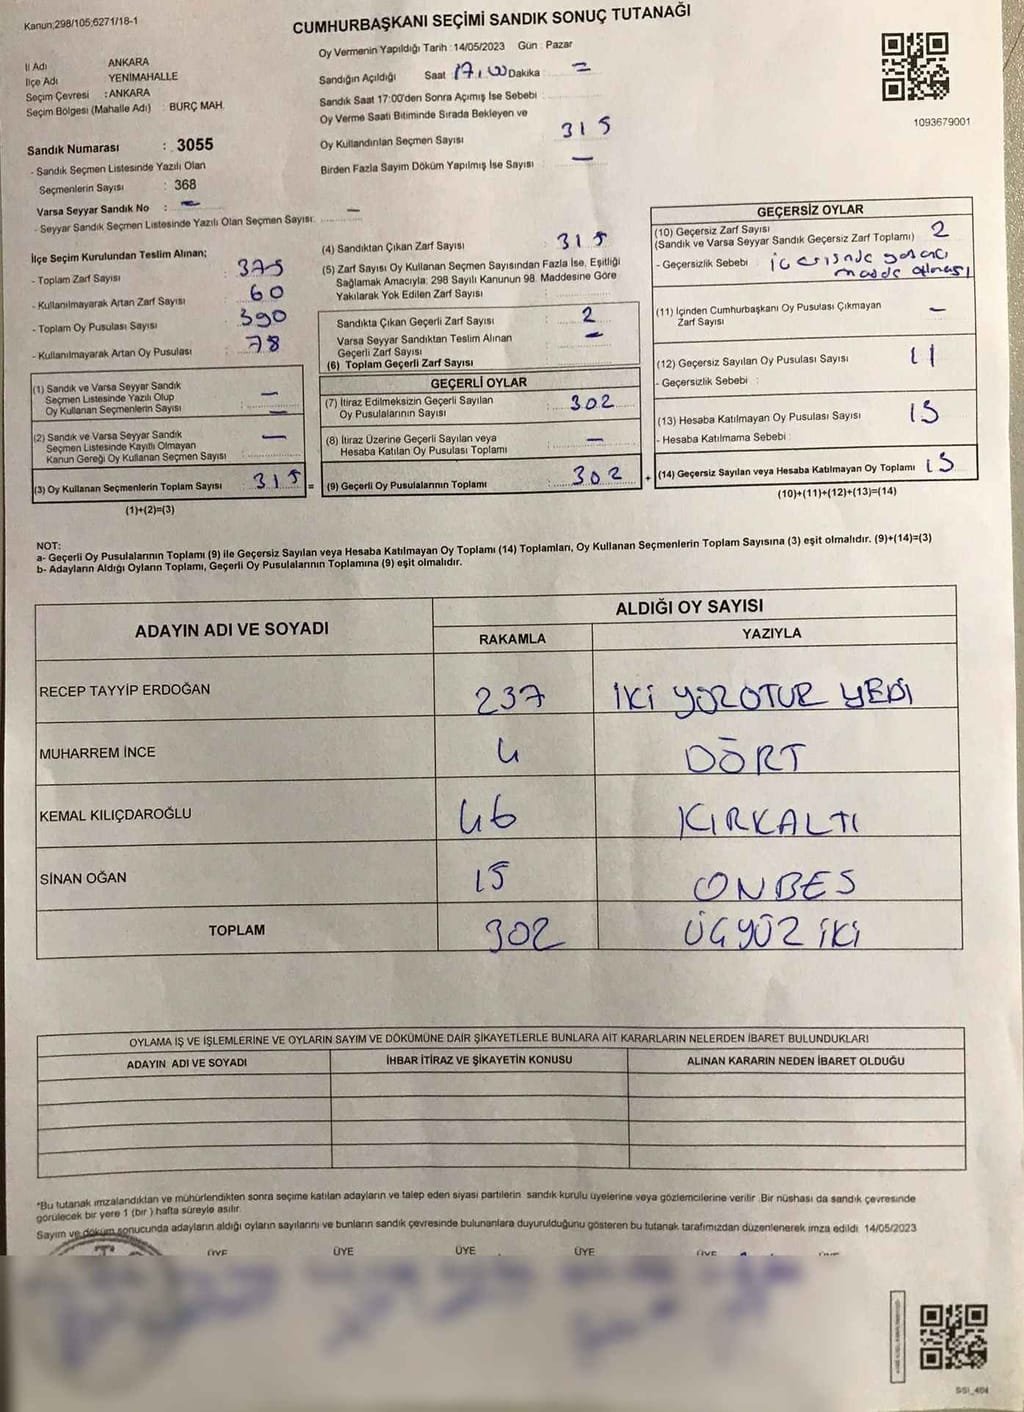 Kanun:298/105;6271/18-1
CUMHURBAŞKANI SEÇİMİ SANDIK SONUÇ TUTANAĞI
Oy Vermenin Yapıldığı Tarih : 14/05/2023 Gün : Pazar
İl Adı ANKARA
İlçe Adı YENİMAHALLE
Seçim Çevresi : ANKARA
Seçim Bölgesi (Mahalle Adı) : BURÇ MAH.
Sandığın Açıldığı Saat 17.00 Dakika : =
Sandık Saat 17:00'den Sonra Açımış İse Sebebi :
Oy Verme Saati Bitiminde Sırada Bekleyen ve
Oy Kullandırılan Seçmen Sayısı : 315
Birden Fazla Sayım Döküm Yapılmış İse Sayısı : —
1093679001
Sandık Numarası : 3055
- Sandık Seçmen Listesinde Yazılı Olan
Seçmenlerin Sayısı : 368
Varsa Seyyar Sandık No : —
- Seyyar Sandık Seçmen Listesinde Yazılı Olan Seçmen Sayısı: —
İlçe Seçim Kurulundan Teslim Alınan;
- Toplam Zarf Sayısı : 375
- Kullanılmayarak Artan Zarf Sayısı : 60
- Toplam Oy Pusulası Sayısı : 390
- Kullanılmayarak Artan Oy Pusulası : 78
(1) Sandık ve Varsa Seyyar Sandık
Seçmen Listesinde Yazılı Olup
Oy Kullanan Seçmenlerin Sayısı : —
(2) Sandık ve Varsa Seyyar Sandık
Seçmen Listesinde Kayıtlı Olmayan
Kanun Gereği Oy Kullanan Seçmen Sayısı : —
(3) Oy Kullanan Seçmenlerin Toplam Sayısı : 315 =
(1)+(2)=(3)
(4) Sandıktan Çıkan Zarf Sayısı : 315
(5) Zarf Sayısı Oy Kullanan Seçmen Sayısından Fazla İse, Eşitliği
Sağlamak Amacıyla; 298 Sayılı Kanunun 98. Maddesine Göre
Yakılarak Yok Edilen Zarf Sayısı :
Sandıkta Çıkan Geçerli Zarf Sayısı : 2
Varsa Seyyar Sandıktan Teslim Alınan
Geçerli Zarf Sayısı : —
(6) Toplam Geçerli Zarf Sayısı
GEÇERLİ OYLAR
(7) İtiraz Edilmeksizin Geçerli Sayılan
Oy Pusulalarının Sayısı : 302
(8) İtiraz Üzerine Geçerli Sayılan veya
Hesaba Katılan Oy Pusulası Toplamı : —
(9) Geçerli Oy Pusulalarının Toplamı : 302 +
GEÇERSİZ OYLAR
(10) Geçersiz Zarf Sayısı
(Sandık ve Varsa Seyyar Sandık Geçersiz Zarf Toplamı) 2
- Geçersizlik Sebebi : içerisinde yabancı
madde olması
(11) İçinden Cumhurbaşkanı Oy Pusulası Çıkmayan
Zarf Sayısı —
(12) Geçersiz Sayılan Oy Pusulası Sayısı 11
- Geçersizlik Sebebi :
(13) Hesaba Katılmayan Oy Pusulası Sayısı 15
- Hesaba Katılmama Sebebi
(14) Geçersiz Sayılan veya Hesaba Katılmayan Oy Toplamı 15
(10)+(11)+(12)+(13)=(14)
NOT:
a- Geçerli Oy Pusulalarının Toplamı (9) ile Geçersiz Sayılan veya Hesaba Katılmayan Oy Toplamı (14) Toplamları, Oy Kullanan Seçmenlerin Toplam Sayısına (3) eşit olmalıdır. (9)+(14)=(3)
b- Adayların Aldığı Oyların Toplamı, Geçerli Oy Pusulalarının Toplamına (9) eşit olmalıdır.
ADAYIN ADI VE SOYADI
ALDIĞI OY SAYISI
RAKAMLA YAZIYLA
RECEP TAYYİP ERDOĞAN 237 İKİ YÜZOTUZ YEDİ
MUHARREM İNCE 4 DÖRT
KEMAL KILIÇDAROĞLU 46 KIRKALTI
SİNAN OĞAN 15 ONBES
TOPLAM 302 ÜÇYÜZ İKİ
OYLAMA İŞ VE İŞLEMLERİNE VE OYLARIN SAYIM VE DÖKÜMÜNE DAİR ŞİKAYETLERLE BUNLARA AİT KARARLARIN NELERDEN İBARET BULUNDUKLARI
ADAYIN ADI VE SOYADI İHBAR İTİRAZ VE ŞİKAYETİN KONUSU ALINAN KARARIN NEDEN İBARET OLDUĞU
*Bu tutanak imzalandıktan ve mühürlendikten sonra seçime katılan adayların ve talep eden siyasi partilerin sandık kurulu üyelerine veya gözlemcilerine verilir. Bir nüshası da sandık çevresinde
görülecek bir yere 1 (bir ) hafta süreyle asılır.
Sayım ve döküm sonucunda adayların aldığı oyların sayılarını ve bunların sandık çevresinde bulunanlara duyurulduğunu gösteren bu tutanak tarafımızdan düzenlenerek imza edildi. 14/05/2023
ÜYE ÜYE ÜYE ÜYE ÜYE
SSI_404